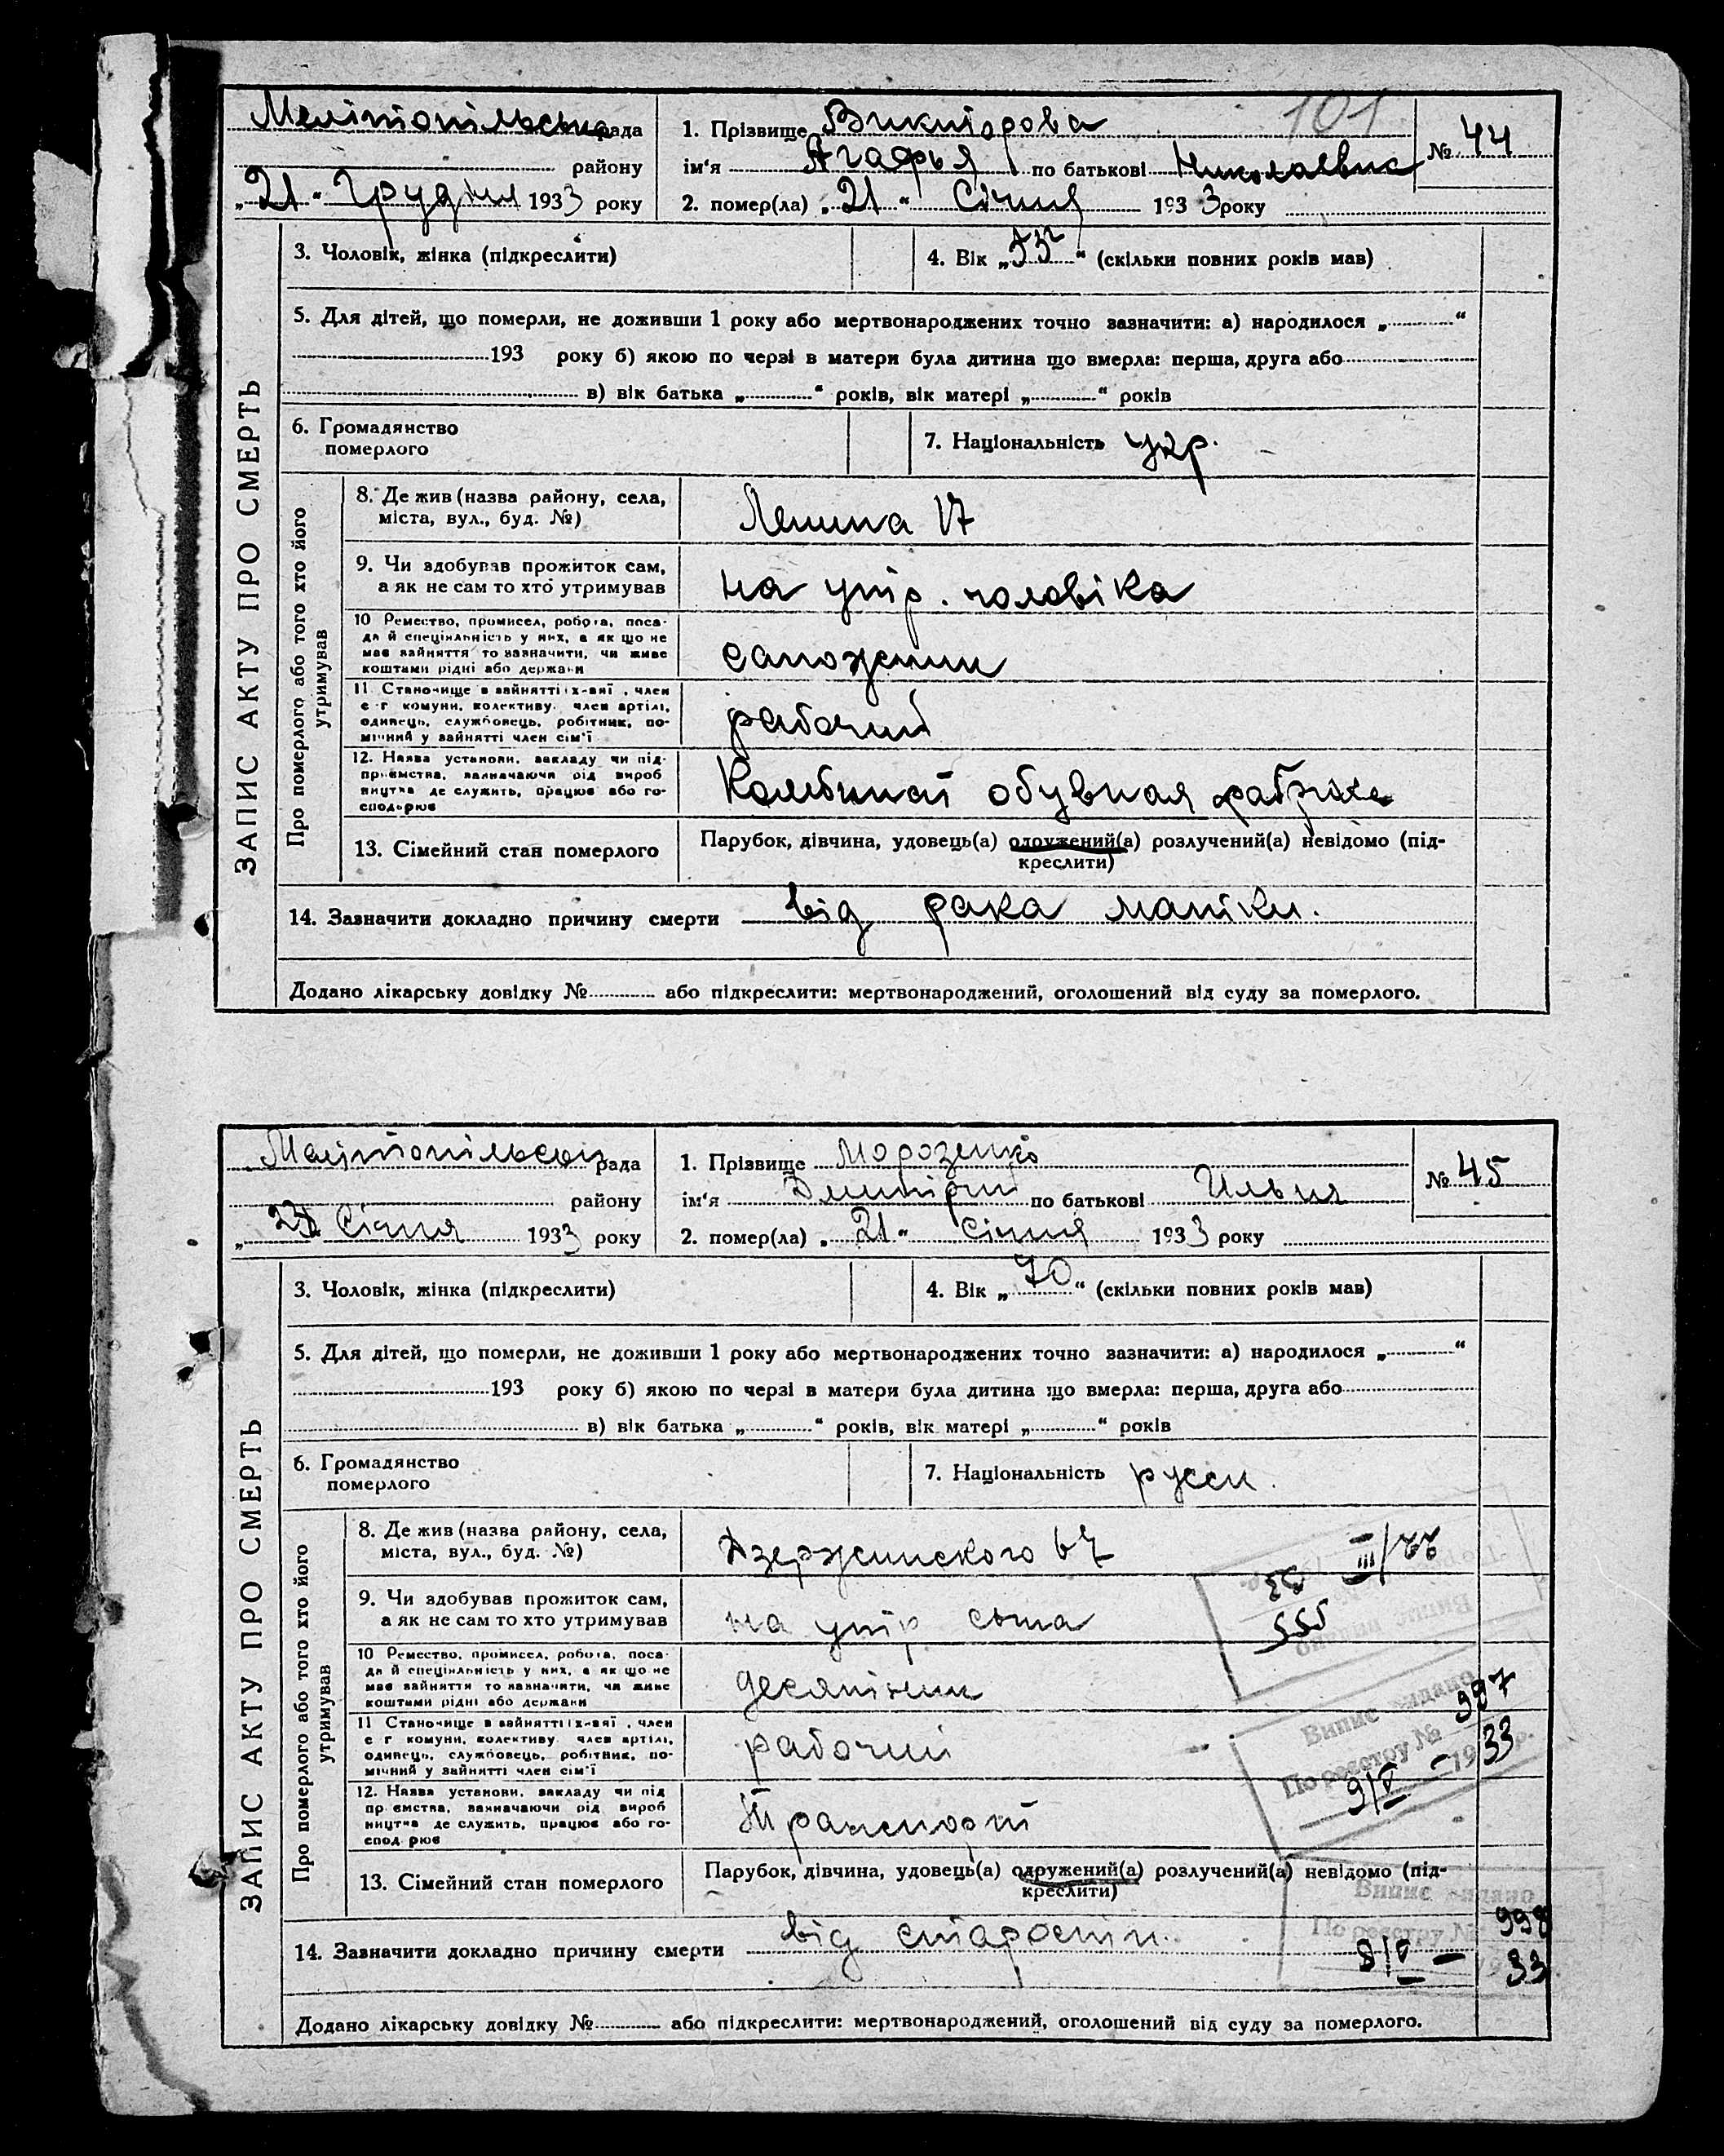 101
Мелітопільська рада
1. Прізвище Викторова
№ 44
району
ім'я Агафья по батькові Николаевна
„21" Грудня 1933 року
2. помер(ла) „21" Січня 1933 року
3. Чоловік, жінка (підкреслити)
4. Вік „ " (скільки повних років мав)
5. Для дітей, що померли, не доживши 1 року або мертвонароджених точно зазначити: а) народилося „ "
193 року б) якою по черзі в матери була дитина що вмерла: перша, друга або
в) вік батька „ " років, вік матері „ " років
6. Громадянство
померлого
7. Національність укр.
ЗАПИС АКТУ ПРО СМЕРТЬ
Про померлого або того хто його
утримував
8. Де жив (назва району, села,
міста, вул., буд. №)
Ленина 17
9. Чи здобував прожиток сам,
а як не сам то хто утримував
на утр. чоловіка
10 Ремество, промисел, робота, поса-
да й спеціяльність у них, а як що не
має зайняття то зазначити, чи живе
коштами рідні або держави
сапожник
11 Становище в зайнятті, член
с г комуни, колективу, член артілі,
одинець, службовець, робітник, по-
мічний у зайнятті член сім'ї
рабочий
12. Назва установи, закладу чи під-
приємства, зазначаючи рід вироб
ництва де служить, працює або го-
сподарює
Комбинат обувная фабрика
13. Сімейний стан померлого
Парубок, дівчина, удовець(а) одружений(а) розлучений(а) невідомо (під-
креслити)
14. Зазначити докладно причину смерти від рака матки.
Додано лікарську довідку № або підкреслити: мертвонароджений, оголошений від суду за померлого.
Мелітопільськ рада
1. Прізвище Морозенко
№ 45
району
ім'я Дмитрий по батькові Ильич
„ Січня 1933 року
2. помер(ла) „21" січня 1933 року
3. Чоловік, жінка (підкреслити)
4. Вік „70" (скільки повних років мав)
5. Для дітей, що померли, не доживши 1 року або мертвонароджених точно зазначити: а) народилося „ "
193 року б) якою по черзі в матери була дитина що вмерла: перша, друга або
в) вік батька „ " років, вік матері „ " років
6. Громадянство
померлого
7. Національність русск.
ЗАПИС АКТУ ПРО СМЕРТЬ
Про померлого або того хто його
утримував
8. Де жив (назва району, села,
міста, вул., буд. №)
Дзержинского
9. Чи здобував прожиток сам,
а як не сам то хто утримував
на утр сына
555
10 Ремество, промисел, робота, поса-
да й спеціяльність у них, а як що не
має зайняття то зазначити, чи живе
коштами рідні або держави
десятник
11 Становище в зайнятті, член
с г комуни, колективу, член артілі,
одинець, службовець, робітник, по-
мічний у зайнятті член сім'ї
рабочий
Випис видано 997
По реєстру №
9/V – 1933 р.
12. Назва установи, закладу чи під
приємства, зазначаючи рід вироб
ництва де служить, працює або го-
сподарює
Транспорт
13. Сімейний стан померлого
Парубок, дівчина, удовець(а) одружений(а) розлучений(а) невідомо (під-
креслити)
Випис видано
По реєстру № 998
9/V – 33
14. Зазначити докладно причину смерти від старости.
Додано лікарську довідку № або підкреслити: мертвонароджений, оголошений від суду за померлого.